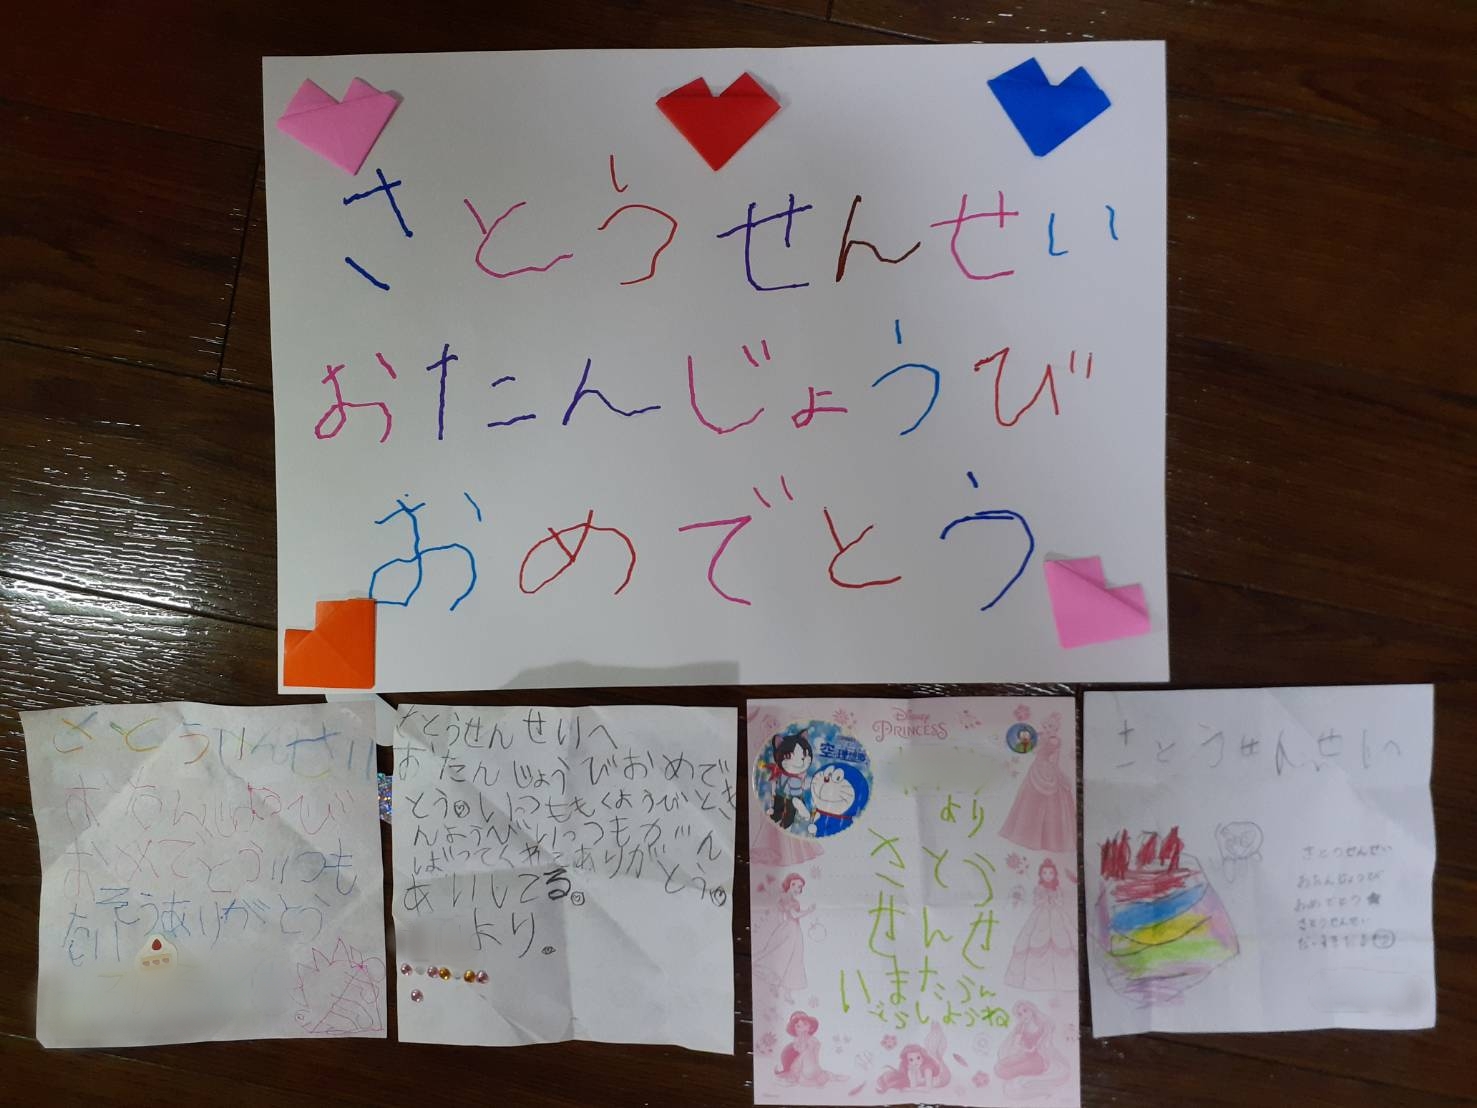 さとうせんせい
おたんじょうび
おめでとう
さとうせんせい
おたんじょうび
おめでとういつも
ありがとう
さとうせんせいへ
おたんじょうびおめで
とう いつももくようびとき
んようびいつもがん
ばってくれてありがとう
あいしてる。
より。
Disney
PRINCESS
より
さとう
せんせ
いまたうん
どうしようね
さとうせんせいへ
さとうせんせい
おたんじょうび
おめでとう★
さとうせんせい
だいすきだよ